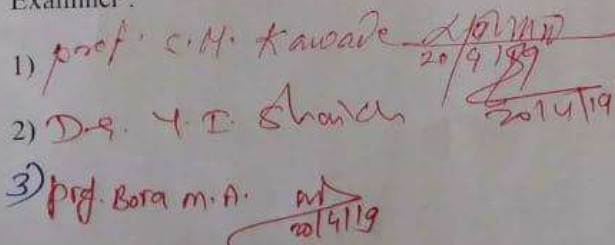 Examiner :
1) prof. C.M. Kawade 20/4/19
2) Dr. Y.I. Shaikh 20/4/19
3) prof. Bora M.A. 20/4/19